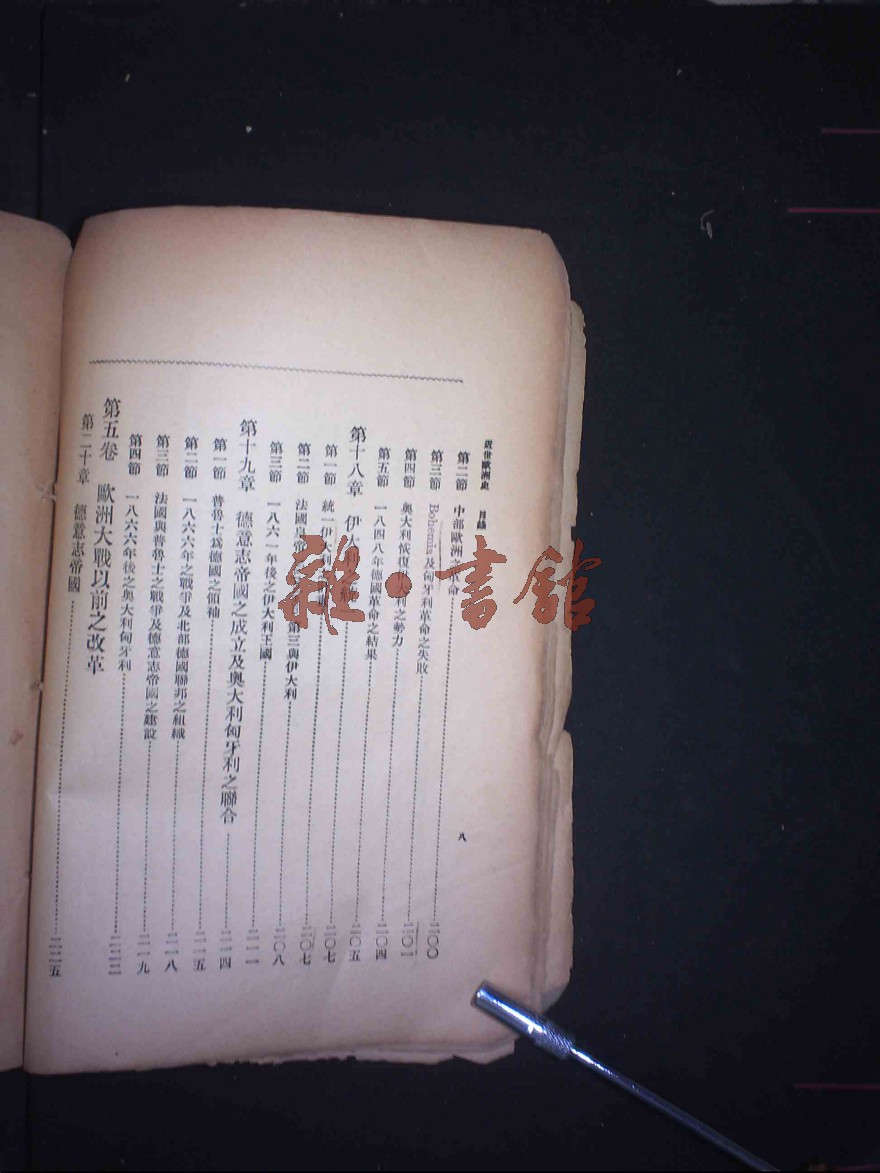 近世歐洲史 目錄
八
第二節 中部歐洲革命 二〇〇
第三節 Bohemia及匈牙利革命之失敗 二〇一
第四節 奧大利恢復伊大利之勢力 二〇四
第五節 一八四八年德國革命之結果 二〇五
第十八章 伊大利之統一 二〇七
第一節 統一伊大利之 二〇七
第二節 法國皇帝 第三與伊大利 二〇八
第三節 一八六一年後之伊大利王國 二一一
第十九章 德意志帝國之成立及奧大利匈牙利之聯合 二一四
第一節 普魯士爲德國之領袖 二一五
第二節 一八六六年之戰爭及北部德國聯邦之組織 二一八
第三節 法國與普魯士之戰爭及德意志帝國之建設 二一九
第四節 一八六六年後之奧大利匈牙利 二二二
第五卷 歐洲大戰以前之改革
第二十章 德意志帝國 二二五
雜·書館